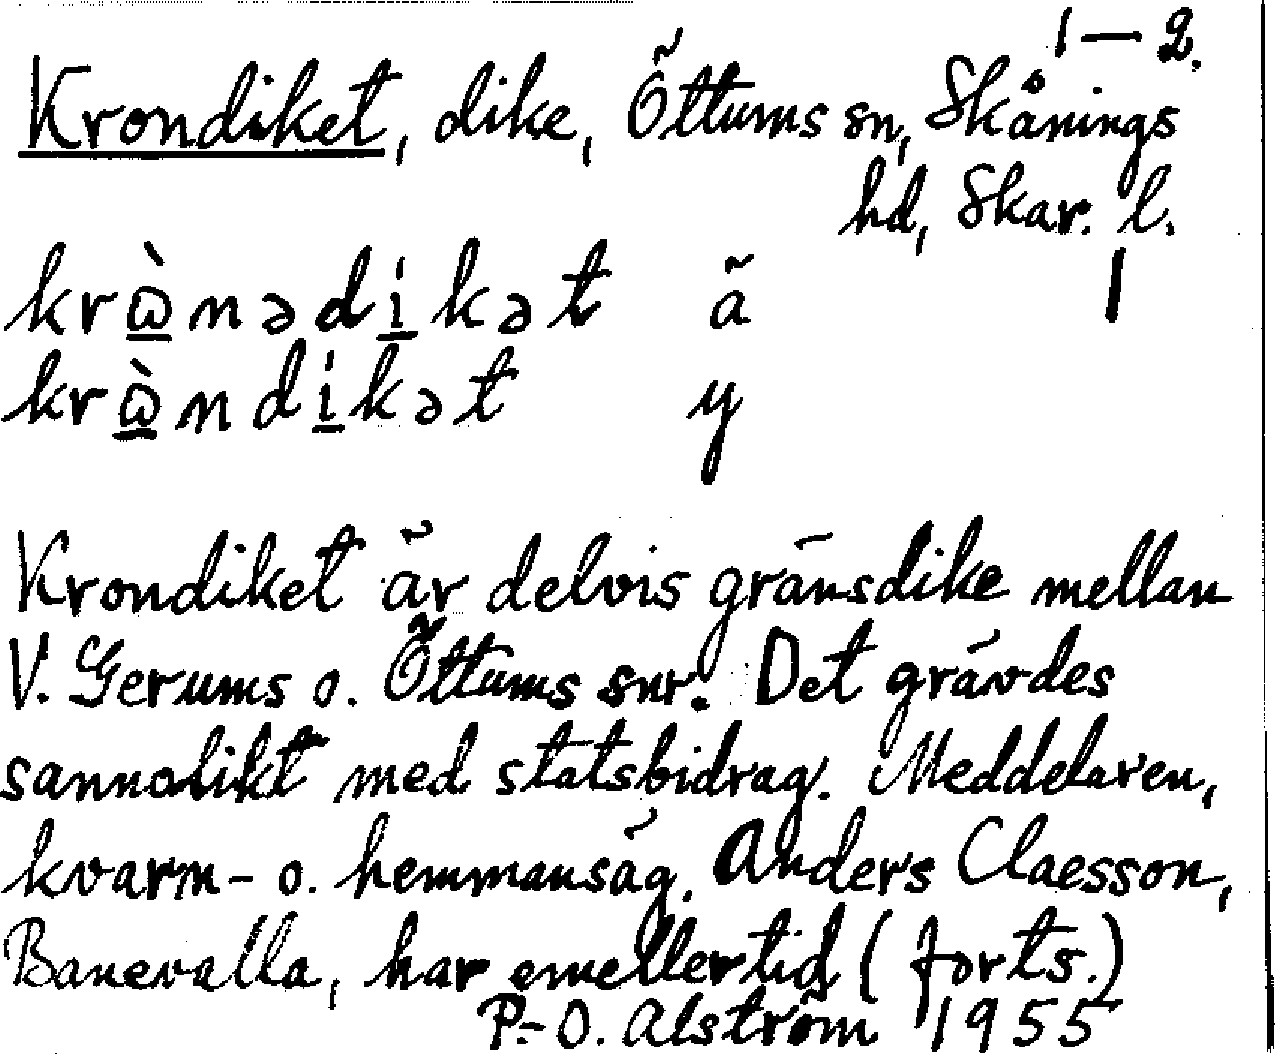 1–2.
Krondiket, dike, Öttums sn, Skånings
hd, Skar. l.
krὼnədi̱kət ä 1
krὼndi̱kət y
Krondiket är delvis gränsdike mellan
V. Gerums o. Öttums snr. Det grävdes
sannolikt med statsbidrag. Meddelaren,
kvarn- o. hemmansäg. Anders Claesson,
Banevalla, har emellertid (forts.)
P.-O. Alström 1955